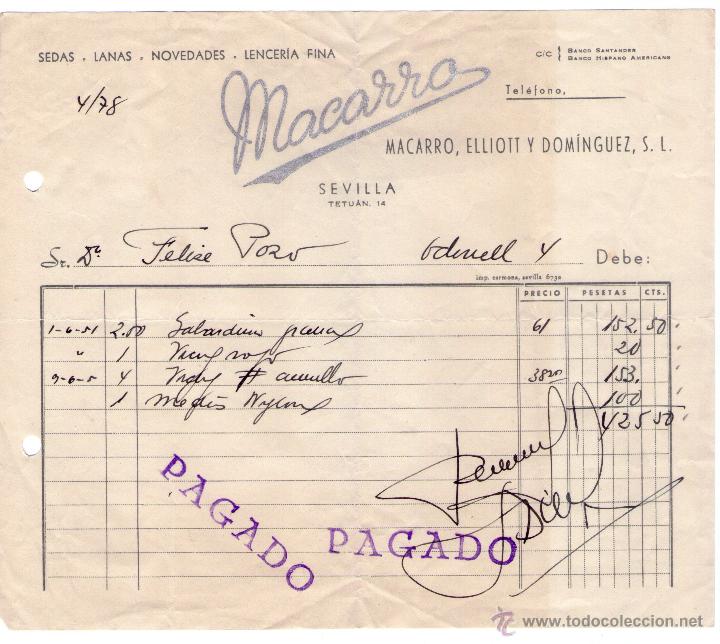 SEDAS . LANAS . NOVEDADES . LENCERÍA FINA
C/C { BANCO SANTANDER
BANCO HISPANO AMERICANO
4/78
Macarro
Teléfono,
MACARRO, ELLIOTT Y DOMÍNGUEZ, S. L.
SEVILLA
TETUÁN. 14
Sr. Dª Felise Pozo Odonell 4 Debe:
imp. carmona, sevilla 6730
PRECIO PESETAS CTS.
1-6-51 2.00 Gabardina 61 152,50
" 1 Vichy rojo 20
9-6-5 4 Vichy amarillo 3820 153,
1 Medias Nylons 100
425 50
PAGADO
PAGADO
www.todocoleccion.net